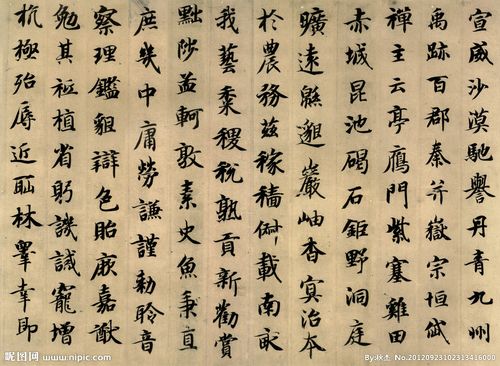 宣威沙漠馳譽丹青九州
禹跡百郡秦并嶽宗恒岱
禪主云亭鴈門紫塞雞田
赤城昆池碣石鉅野洞庭
曠遠緜邈巖岫杳冥治本
於農務茲稼穡俶載南畝
我藝黍稷稅熟貢新勸賞
黜陟孟軻敦素史魚秉直
庶幾中庸勞謙謹勑聆音
察理鑑貌辯色貽厥嘉猷
勉其祗植省躬譏誡寵增
抗極殆辱近耻林睪幸即
昵图网 www.nipic.com
No.20120923102313416000